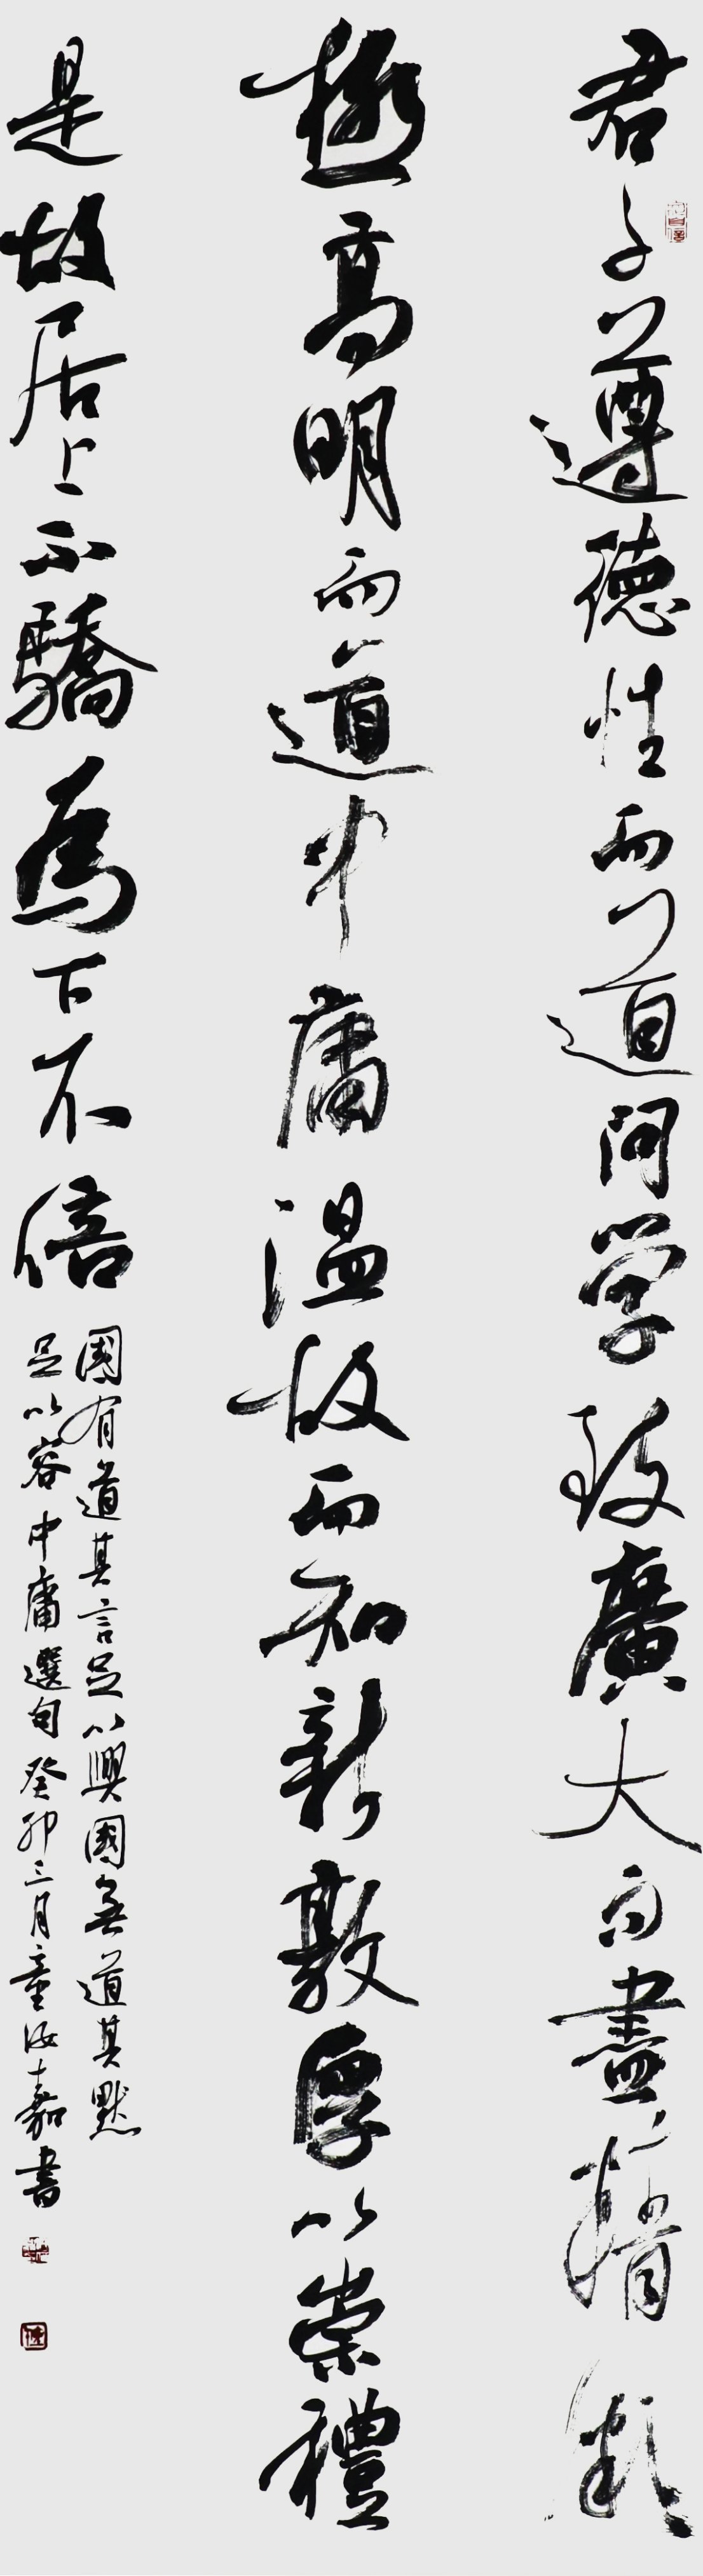 君子遵德性而道問学致廣大而盡精微
極高明而道中庸温故而知新敦厚以崇禮
是故居上不驕為下不倍
國有道其言足以興國無道其默
足以容中庸選句癸卯三月童汝嘉書